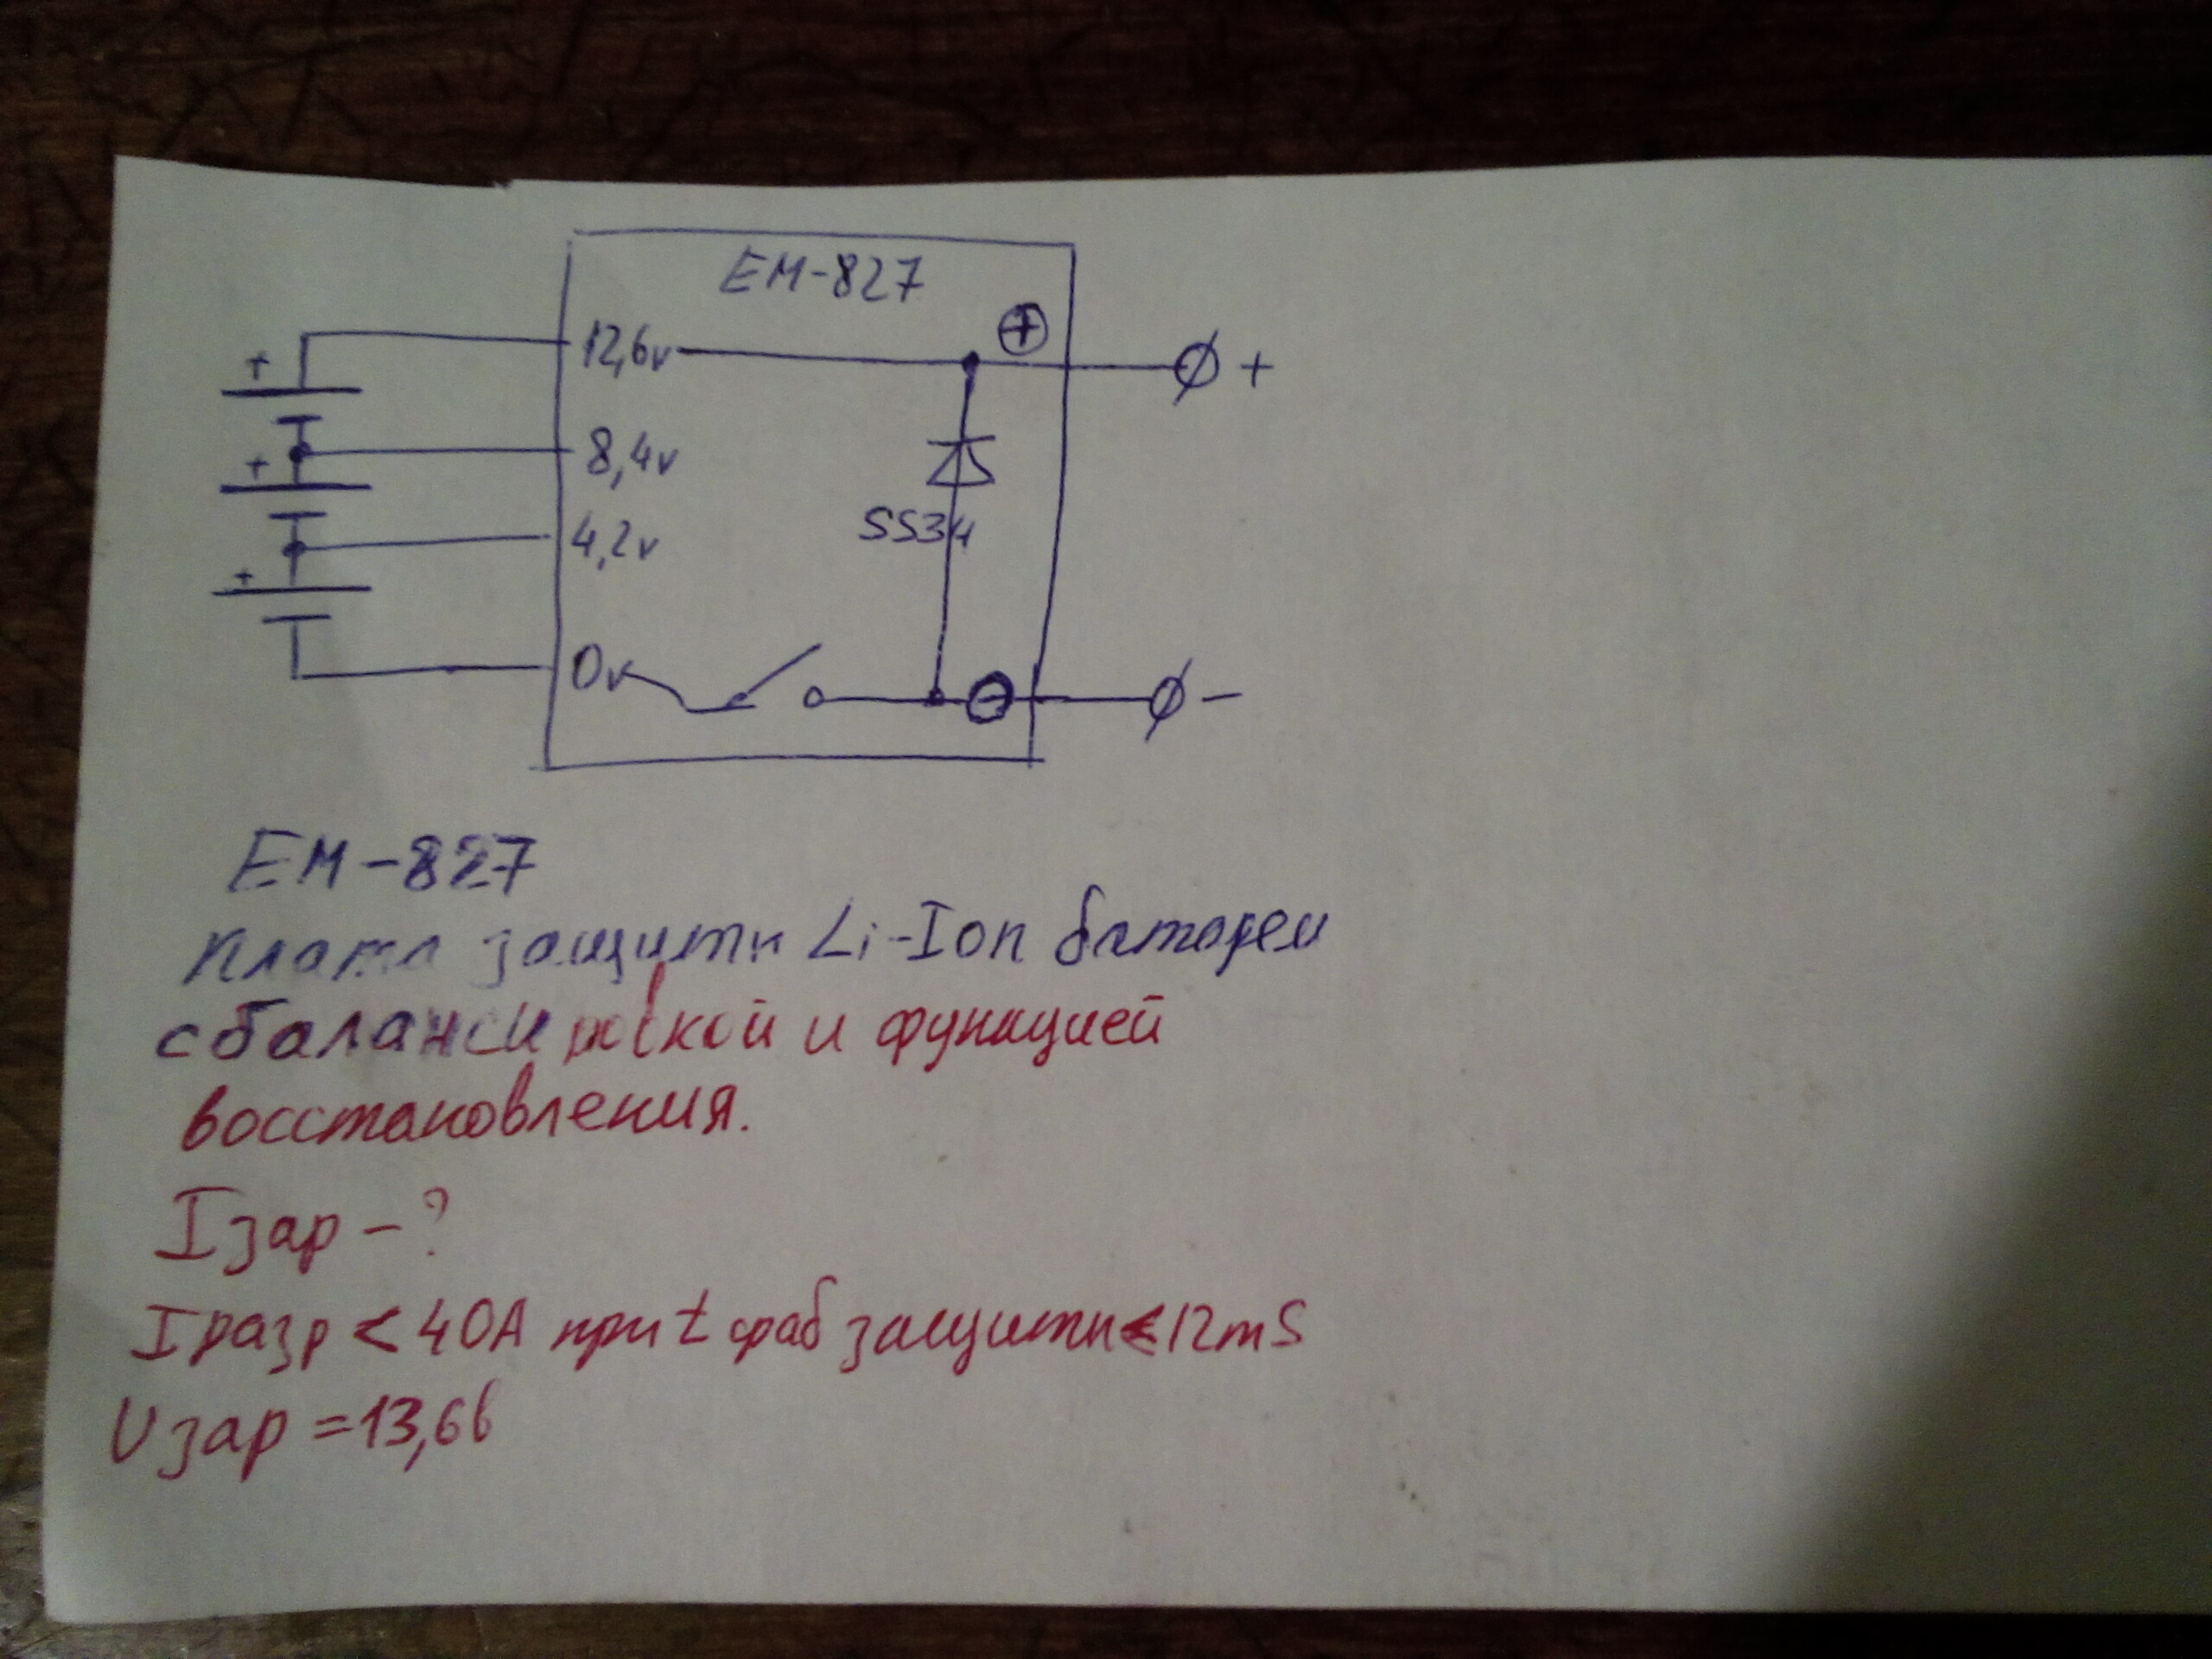 EM-827
+
12,6v
+
+
8,4v
+
SS34
4,2v
+
0v
-
-
EM-827
плата защиты Li-Ion батареи
с балансировкой и функцией
восстановления.
Iзар - ?
Iразр < 40A при t сраб защиты < 12mS
Uзар = 13,6в